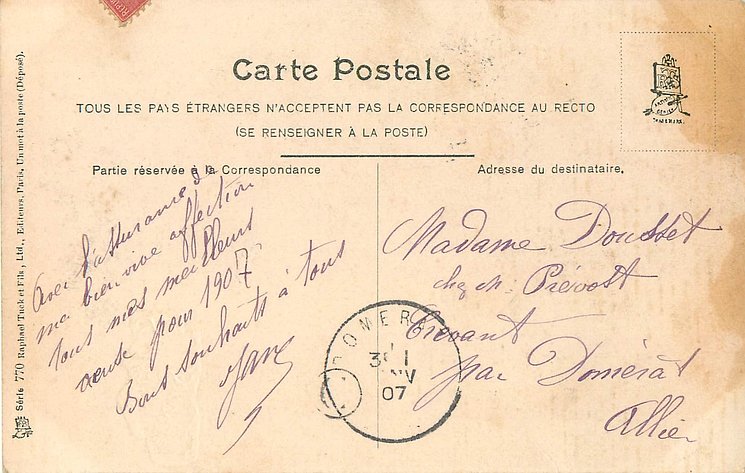 Carte Postale
TOUS LES PAYS ÉTRANGERS N'ACCEPTENT PAS LA CORRESPONDANCE AU RECTO
(SE RENSEIGNER À LA POSTE)
Partie réservée à la Correspondance
Avec l'assurance de
ma bien vive affection
tous mes meilleurs
vœux pour 1907
Bons souhaits à tous
Adresse du destinataire.
Madame Dousset
chez M. Prévost
Crevant
par Domérat
Allier
DOMERAT
31
07
Série 770 Raphael Tuck et Fils, Ltd., Editeurs, Paris, Un mot à la poste (Déposé).